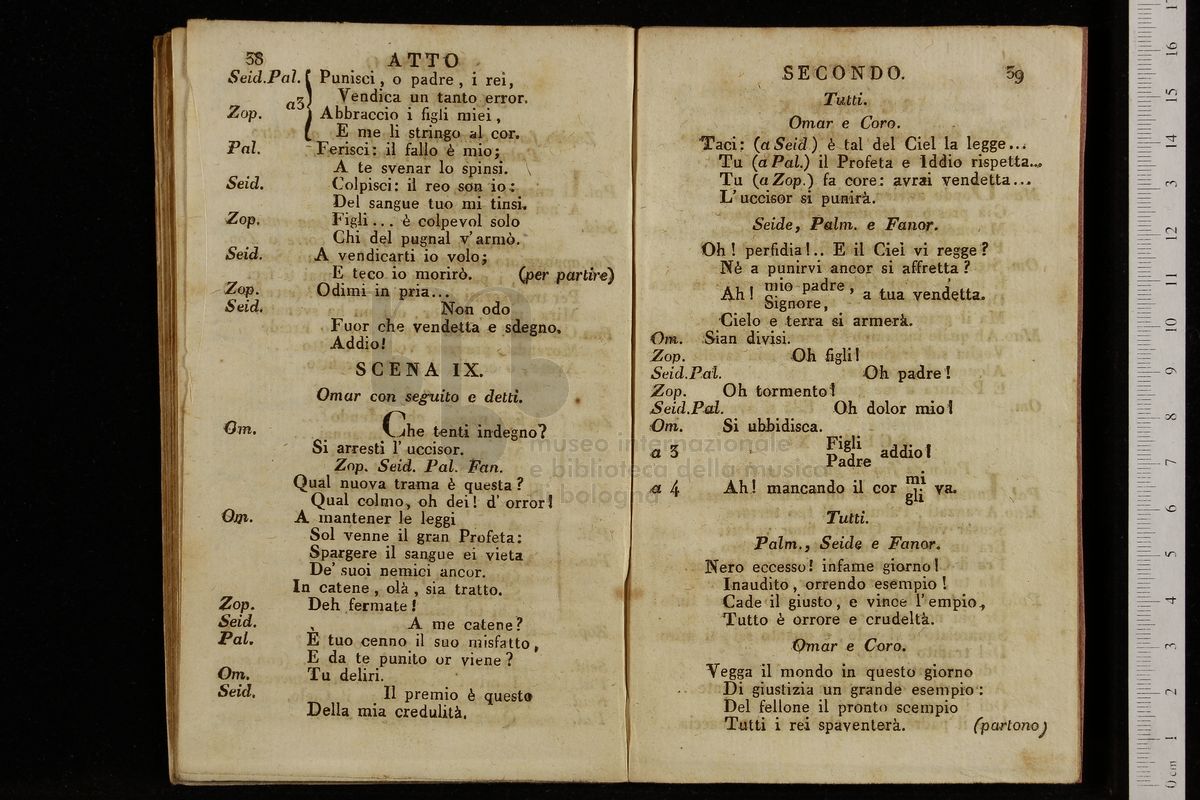 38
ATTO
Seid.Pal. Punisci, o padre, i rei,
Vendica un tanto error.
a3
Zop. Abbraccio i figli miei,
E me li stringo al cor.
Pal. Ferisci: il fallo è mio;
A te svenar lo spinsi.
Seid. Colpisci: il reo son io:
Del sangue tuo mi tinsi.
Zop. Figli... è colpevol solo
Chi del pugnal v' armò.
Seid. A vendicarti io volo;
E teco io morirò. (per partire)
Zop. Odimi in pria...
Seid. Non odo
Fuor che vendetta e sdegno.
Addio!
SCENA IX.
Omar con seguito e detti.
Om. Che tenti indegno?
Si arresti l' uccisor.
Zop. Seid. Pal. Fan.
Qual nuova trama è questa?
Qual colmo, oh dei! d' orror!
Om. A mantener le leggi
Sol venne il gran Profeta:
Spargere il sangue ei vieta
De' suoi nemici ancor.
In catene, olà, sia tratto.
Zop. Deh fermate!
Seid. A me catene?
Pal. È tuo cenno il suo misfatto,
E da te punito or viene?
Om. Tu deliri.
Seid. Il premio è questo
Della mia credulità.
SECONDO.
39
Tutti.
Omar e Coro.
Taci: (a Seid.) è tal del Ciel la legge...
Tu (a Pal.) il Profeta e Iddio rispetta...
Tu (a Zop.) fa core: avrai vendetta...
L' uccisor si punirà.
Seide, Palm. e Fanor.
Oh! perfidia!.. E il Ciel vi regge?
Nè a punirvi ancor si affretta?
Ah! mio padre, a tua vendetta.
Signore,
Cielo e terra si armerà.
Om. Sian divisi.
Zop. Oh figli!
Seid.Pal. Oh padre!
Zop. Oh tormento!
Seid.Pal. Oh dolor mio!
Om. Si ubbidisca.
a 3 Figli addio!
Padre
a 4 Ah! mancando il cor mi va.
gli
Tutti.
Palm., Seide e Fanor.
Nero eccesso! infame giorno!
Inaudito, orrendo esempio!
Cade il giusto, e vince l' empio,
Tutto è orrore e crudeltà.
Omar e Coro.
Vegga il mondo in questo giorno
Di giustizia un grande esempio:
Del fellone il pronto scempio
Tutti i rei spaventerà. (partono)
museo internazionale
e biblioteca della musica
di bologna
0 cm 1 2 3 4 5 6 7 8 9 10 11 12 13 14 15 16 17